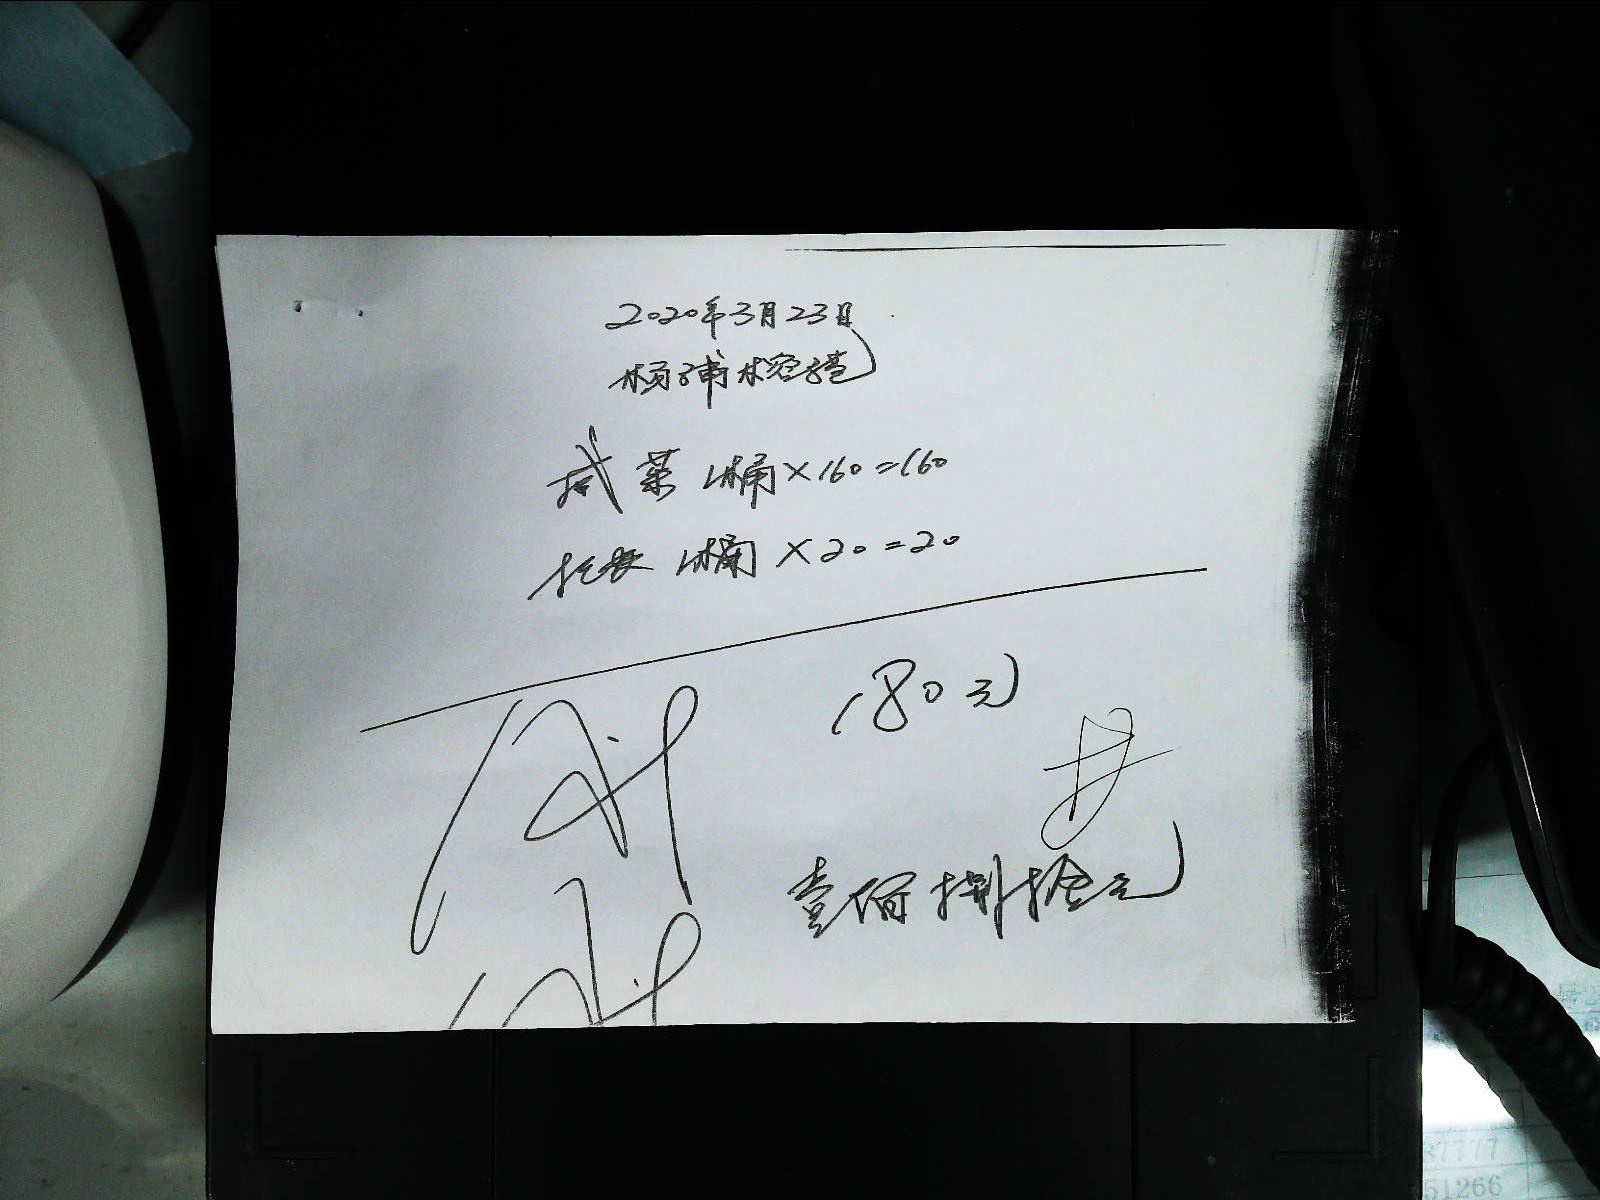 2020年3月23日
杨浦
咸菜 1桶×160=160
1桶×20=20
180元
壹佰捌拾元
37777
51266